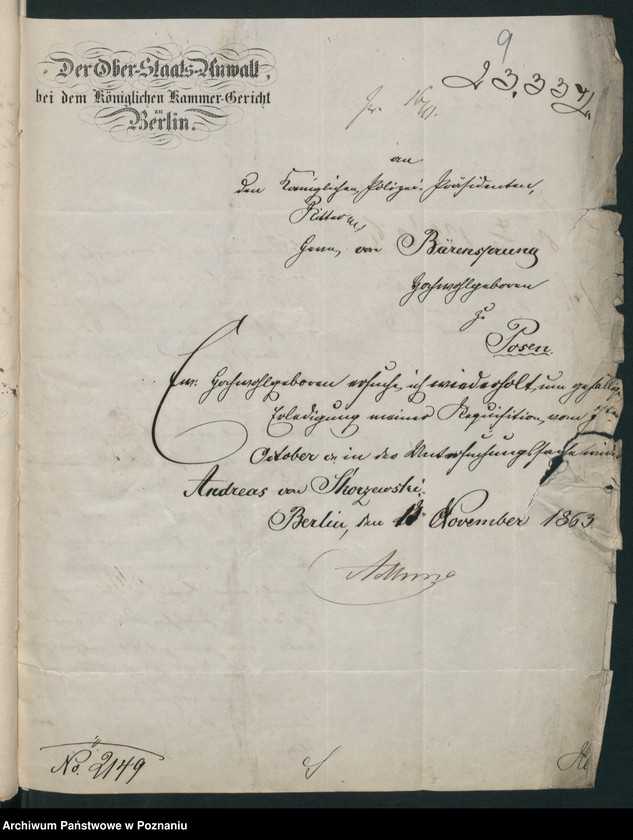 9
Der Ober-Staats-Anwalt,
bei dem Königlichen Kammer-Gericht
Berlin.
23.334.
pr. 16/11.
An
den Königlichen Polizei-Präsidenten,
Ritter
Herrn von Bärensprung
Hochwohlgeboren
zu
Posen.
Ew. Hochwohlgeboren ersuche ich wiederholt, um gefällige
Erledigung meiner Requisition vom
October cr. in der Untersuchungssache wider
Andreas von Skorzewski.
Berlin, den November 1863.
No. 2149
Archiwum Państwowe w Poznaniu